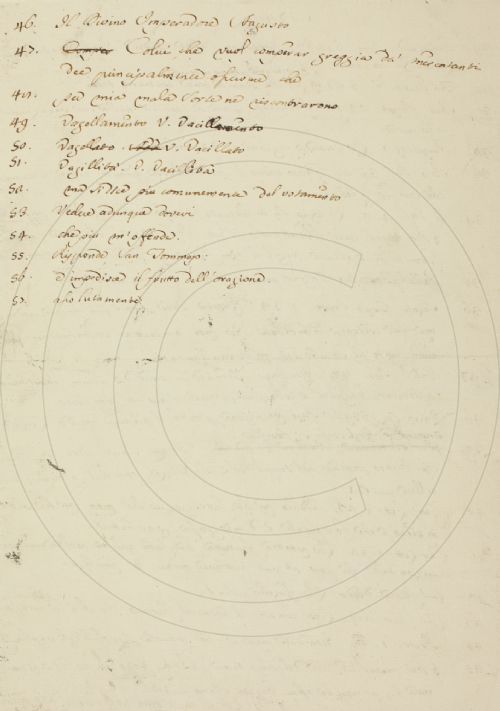 46. Il Divino Imperadore Augusto
47. Colui che vuol comperar greggia da' mercatanti
Dee principalmente osservare, che
48. per mia mala sorte ne riscontrarono
49. Vagellamento V. Vacillamento
50. Vagellato. V. Vacillato
51. Vagillità. V. Vacillità
52. ma si dice più comunemente del votamento
53. Vedere adunque dovevi
54. che più m'offende.
55. Risponde San Tommaso:
56. d'impedisce il frutto dell'orazione.
57. assolutamente